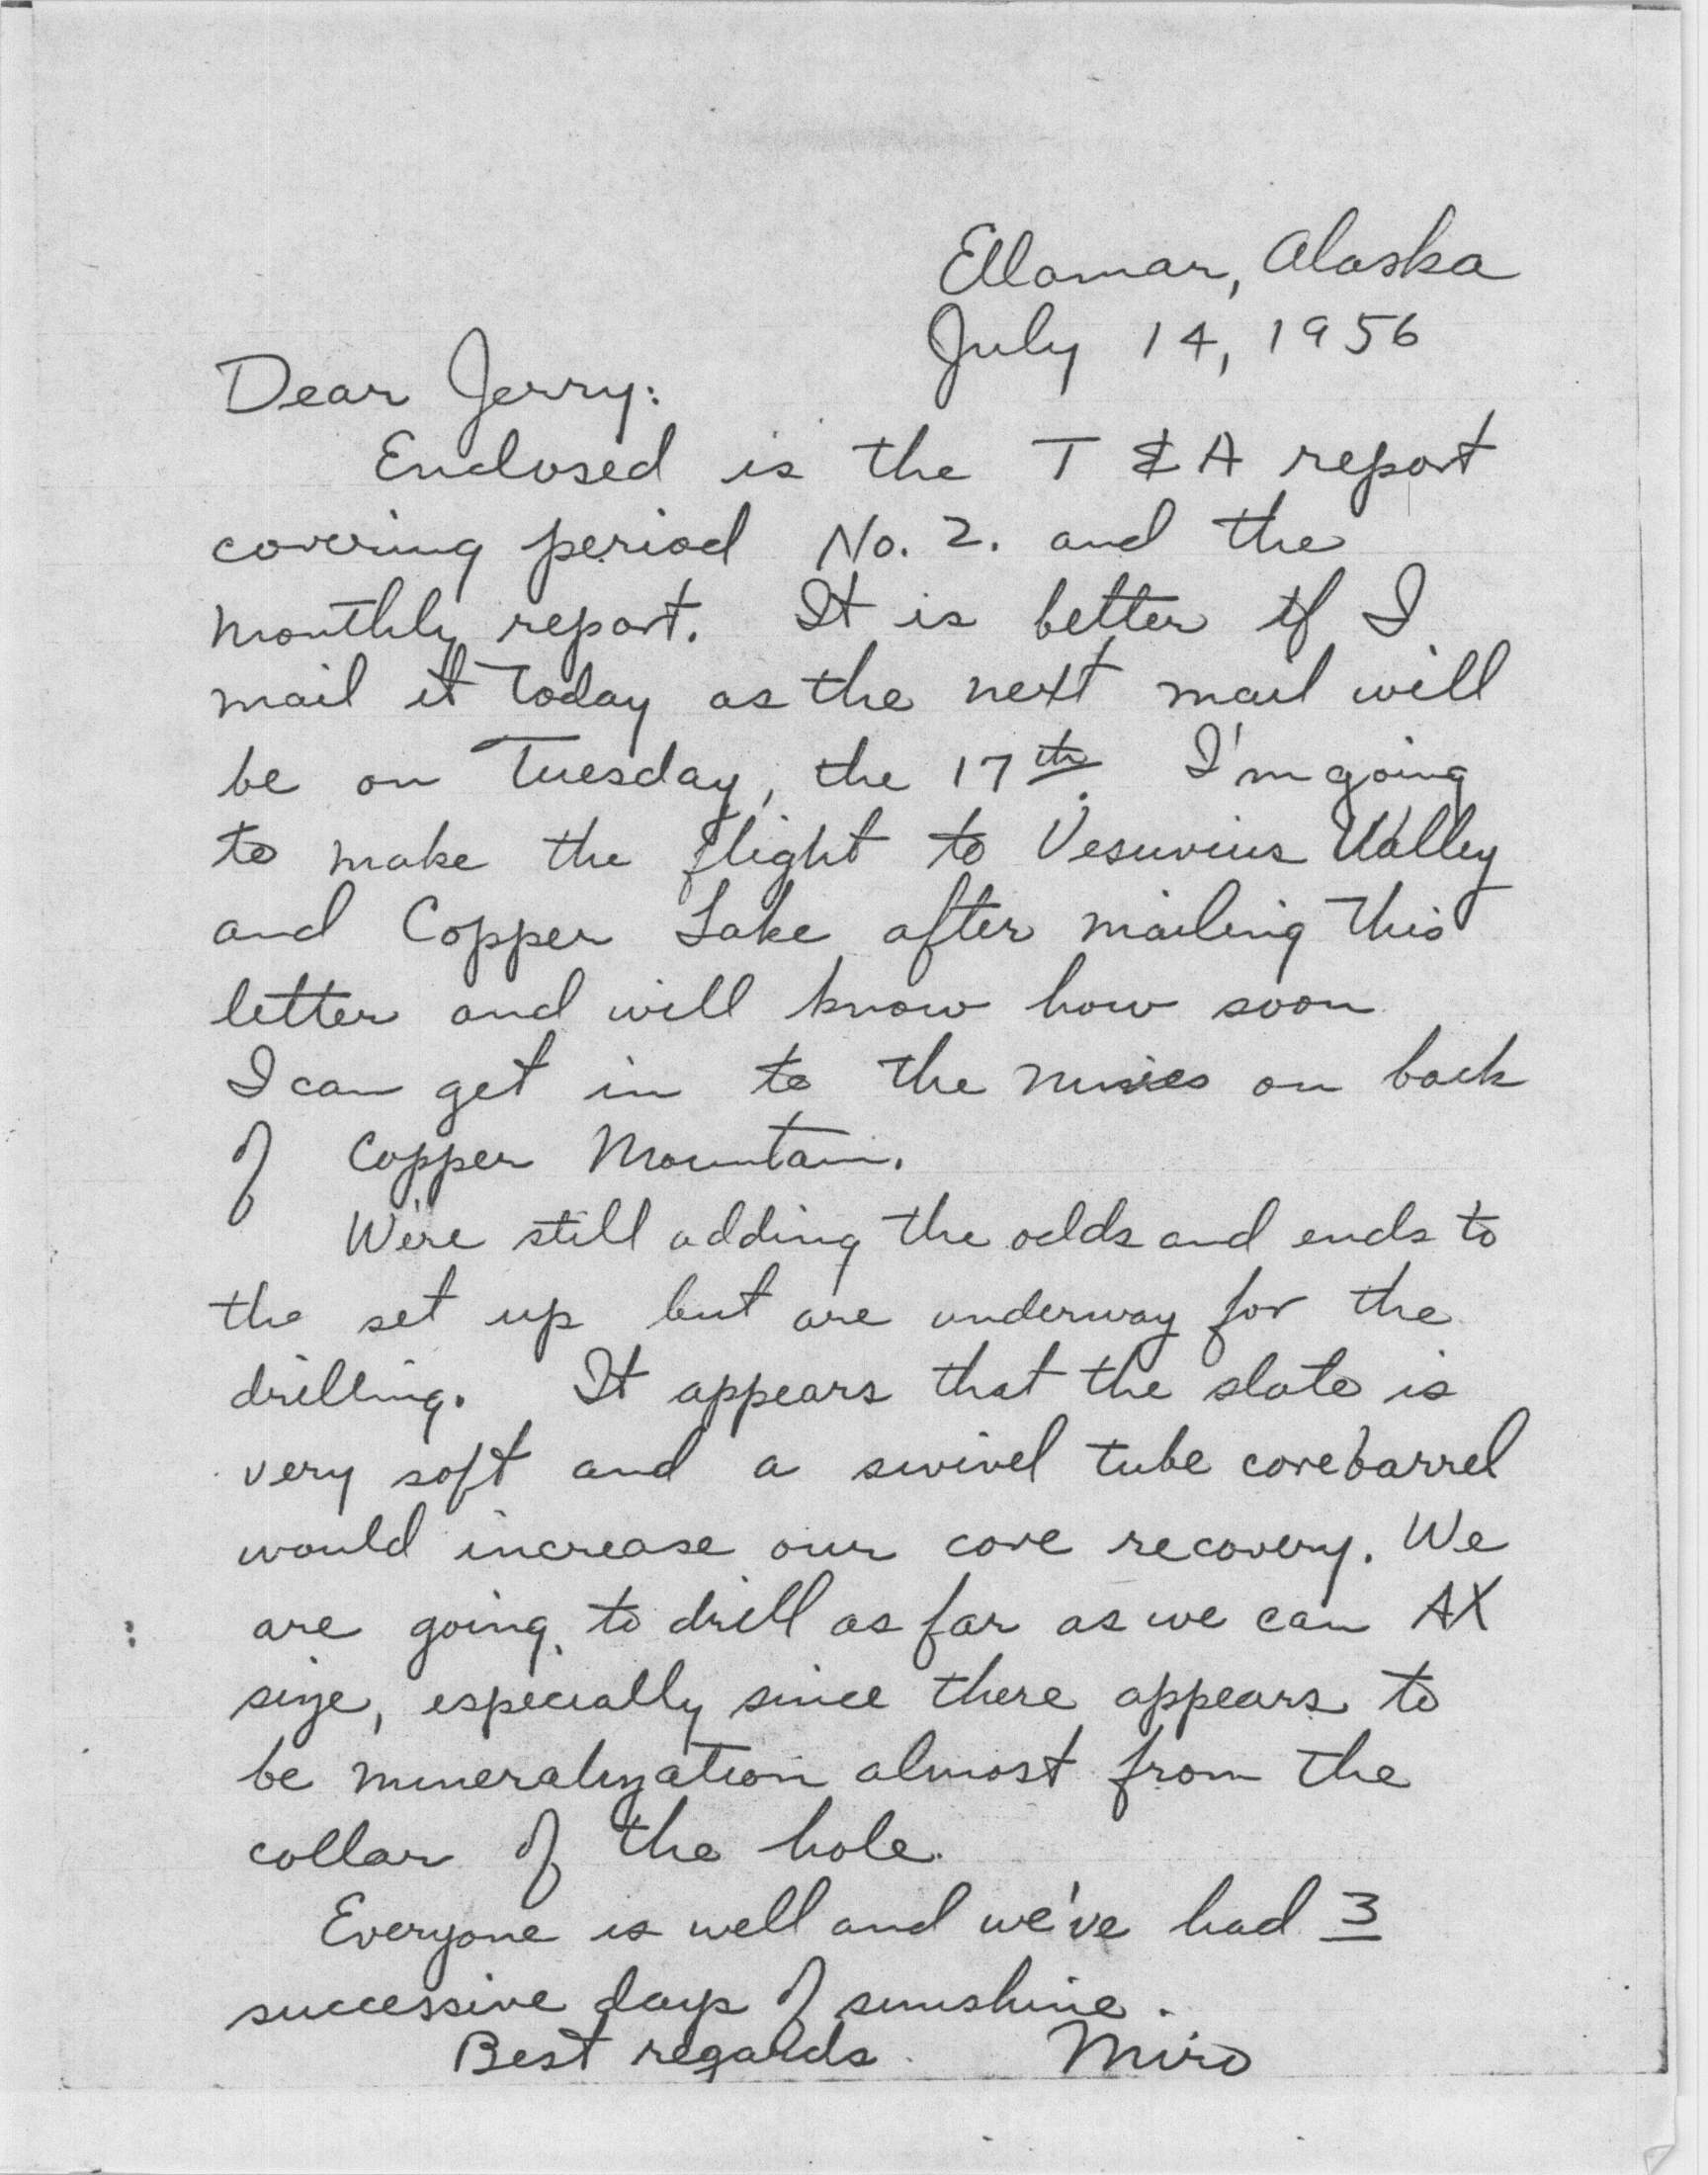 Ellamar, Alaska
July 14, 1956
Dear Jerry:
Enclosed is the T & A report
covering period No. 2. and the
monthly report. It is better if I
mail it today as the next mail will
be on Tuesday, the 17th. I'm going
to make the flight to Vesuvius Valley
and Copper Lake after mailing this
letter and will know how soon
I can get in to the mines on back
of Copper Mountain.
We're still adding the odds and ends to
the set up but are underway for the
drilling. It appears that the slate is
very soft and a swivel tube corebarrel
would increase our core recovery. We
are going to drill as far as we can AX
size, especially since there appears to
be mineralization almost from the
collar of the hole.
Everyone is well and we've had 3
successive days of sunshine.
Best regards Miro